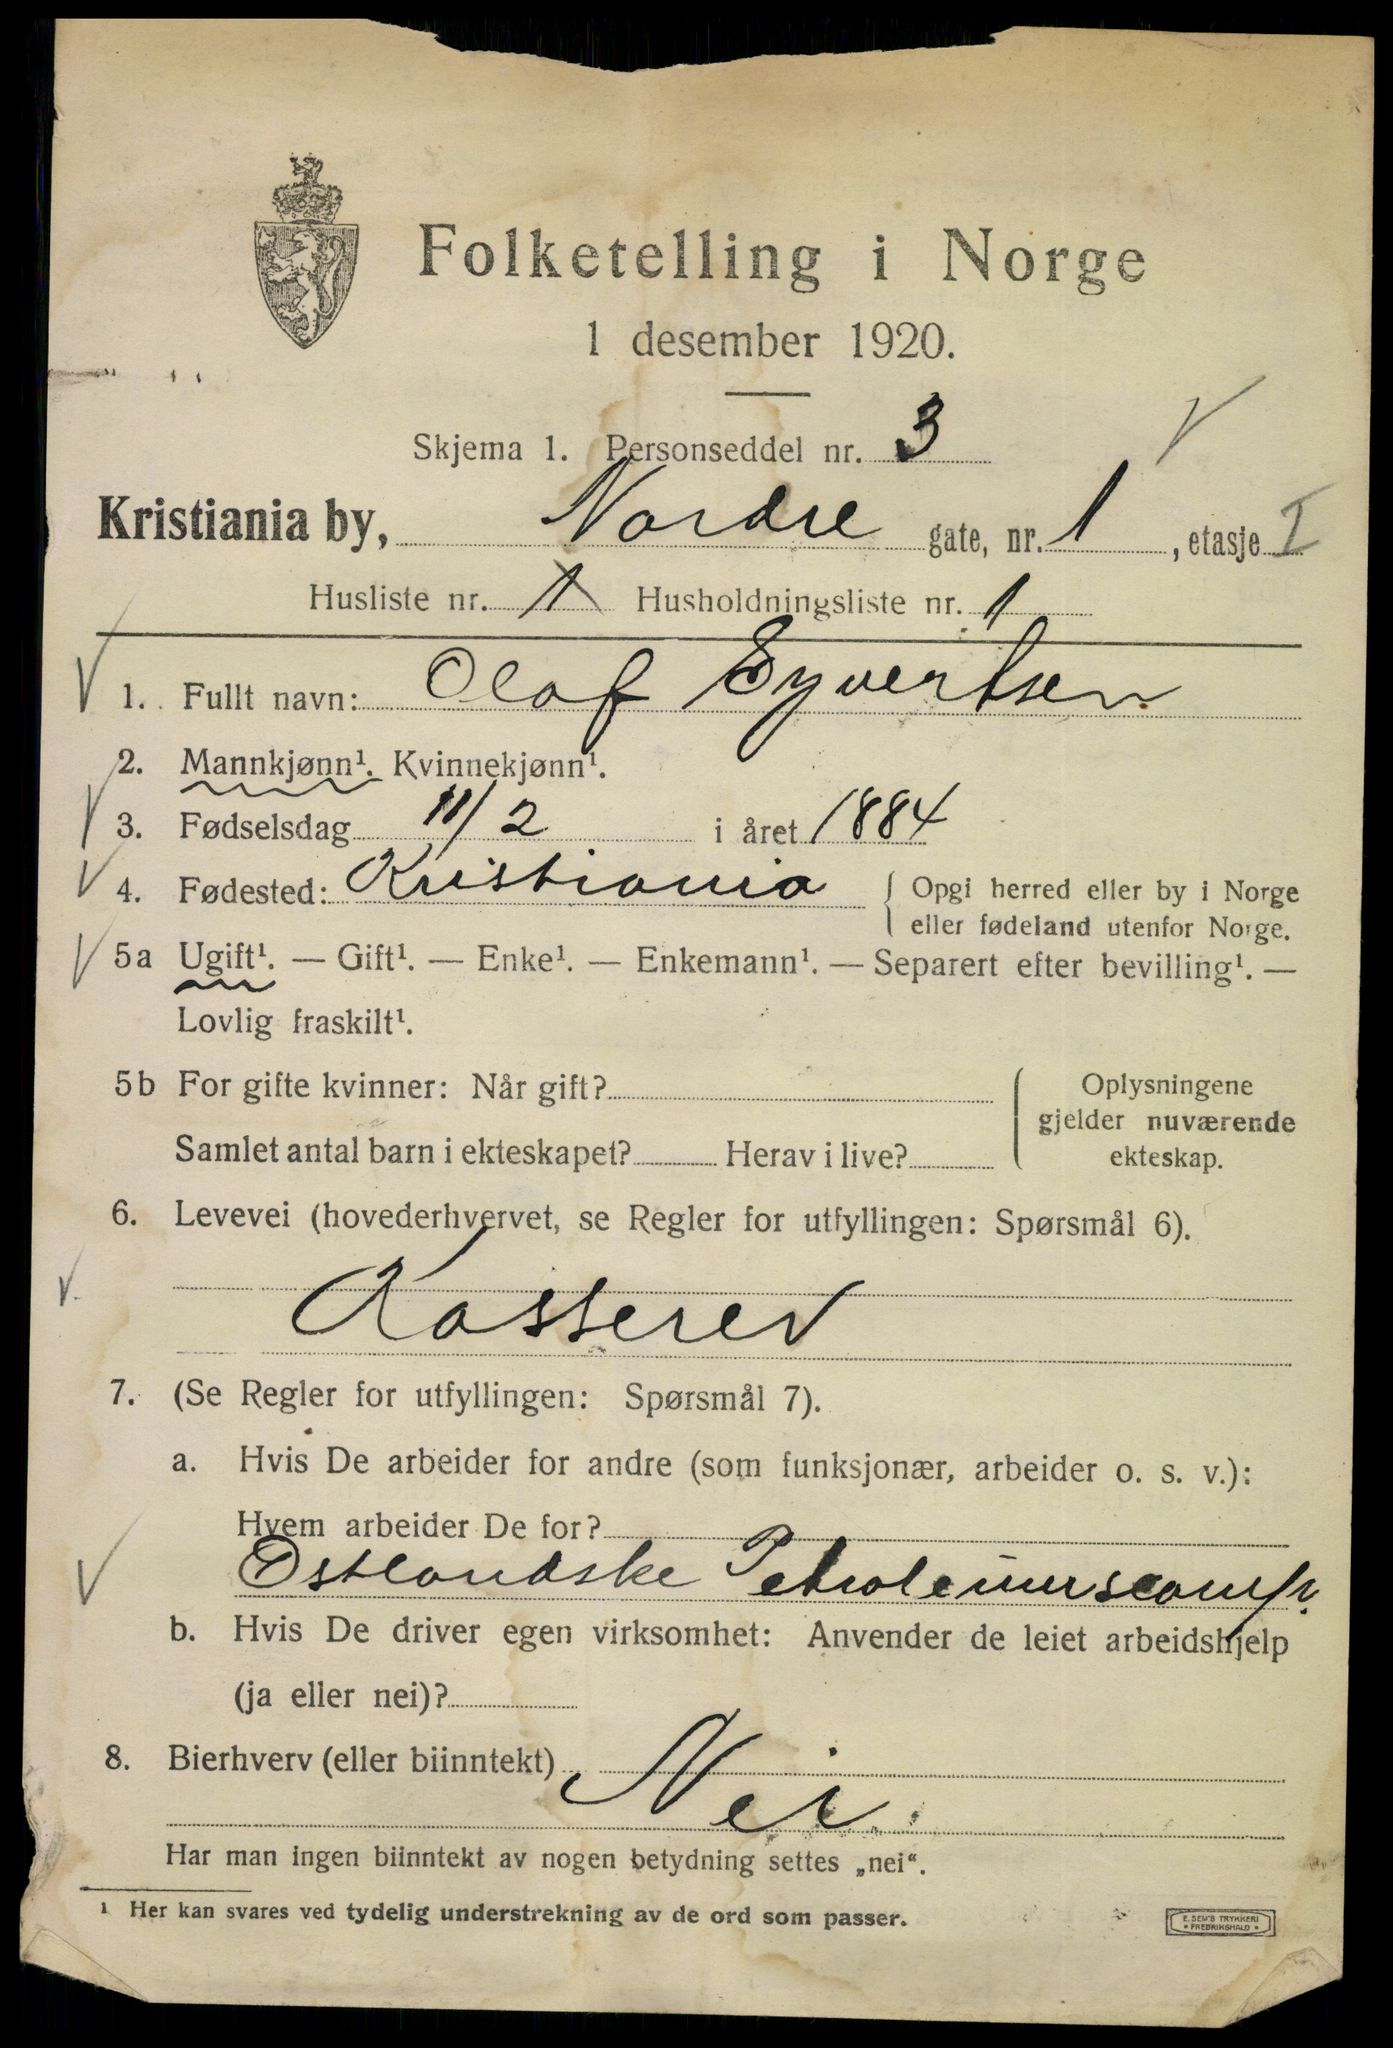 Folketelling i Norge
1 desember 1920.
Skjema 1. Personseddel nr. 3
Kristiania by, Nordre gate, nr. 1, etasje I
Husliste nr. 1 Husholdningsliste nr. 1
1. Fullt navn: Olaf Eyvertsen.
2. Mannkjønn¹. Kvinnekjønn¹.
3. Fødselsdag 11/2 i året 1884
4. Fødested: Kristiania { Opgi herred eller by i Norge
eller fødeland utenfor Norge.
5a Ugift¹. — Gift¹. — Enke¹. — Enkemann¹. — Separert efter bevilling¹. —
Lovlig fraskilt¹.
5b For gifte kvinner: Når gift? { Oplysningene
gjelder nuværende
Samlet antal barn i ekteskapet? Herav i live? ekteskap.
6. Levevei (hovederhvervet, se Regler for utfyllingen: Spørsmål 6).
Kasserer
7. (Se Regler for utfyllingen: Spørsmål 7).
a. Hvis De arbeider for andre (som funksjonær, arbeider o. s. v.):
Hvem arbeider De for?
Østlandske Petroleumscomp.
b. Hvis De driver egen virksomhet: Anvender de leiet arbeidshjelp
(ja eller nei)?
8. Bierhverv (eller biinntekt)
Nei.
Har man ingen biinntekt av nogen betydning settes „nei“.
¹ Her kan svares ved tydelig understrekning av de ord som passer.
E. SEM'S TRYKKERI
• FREDRIKSHALD •